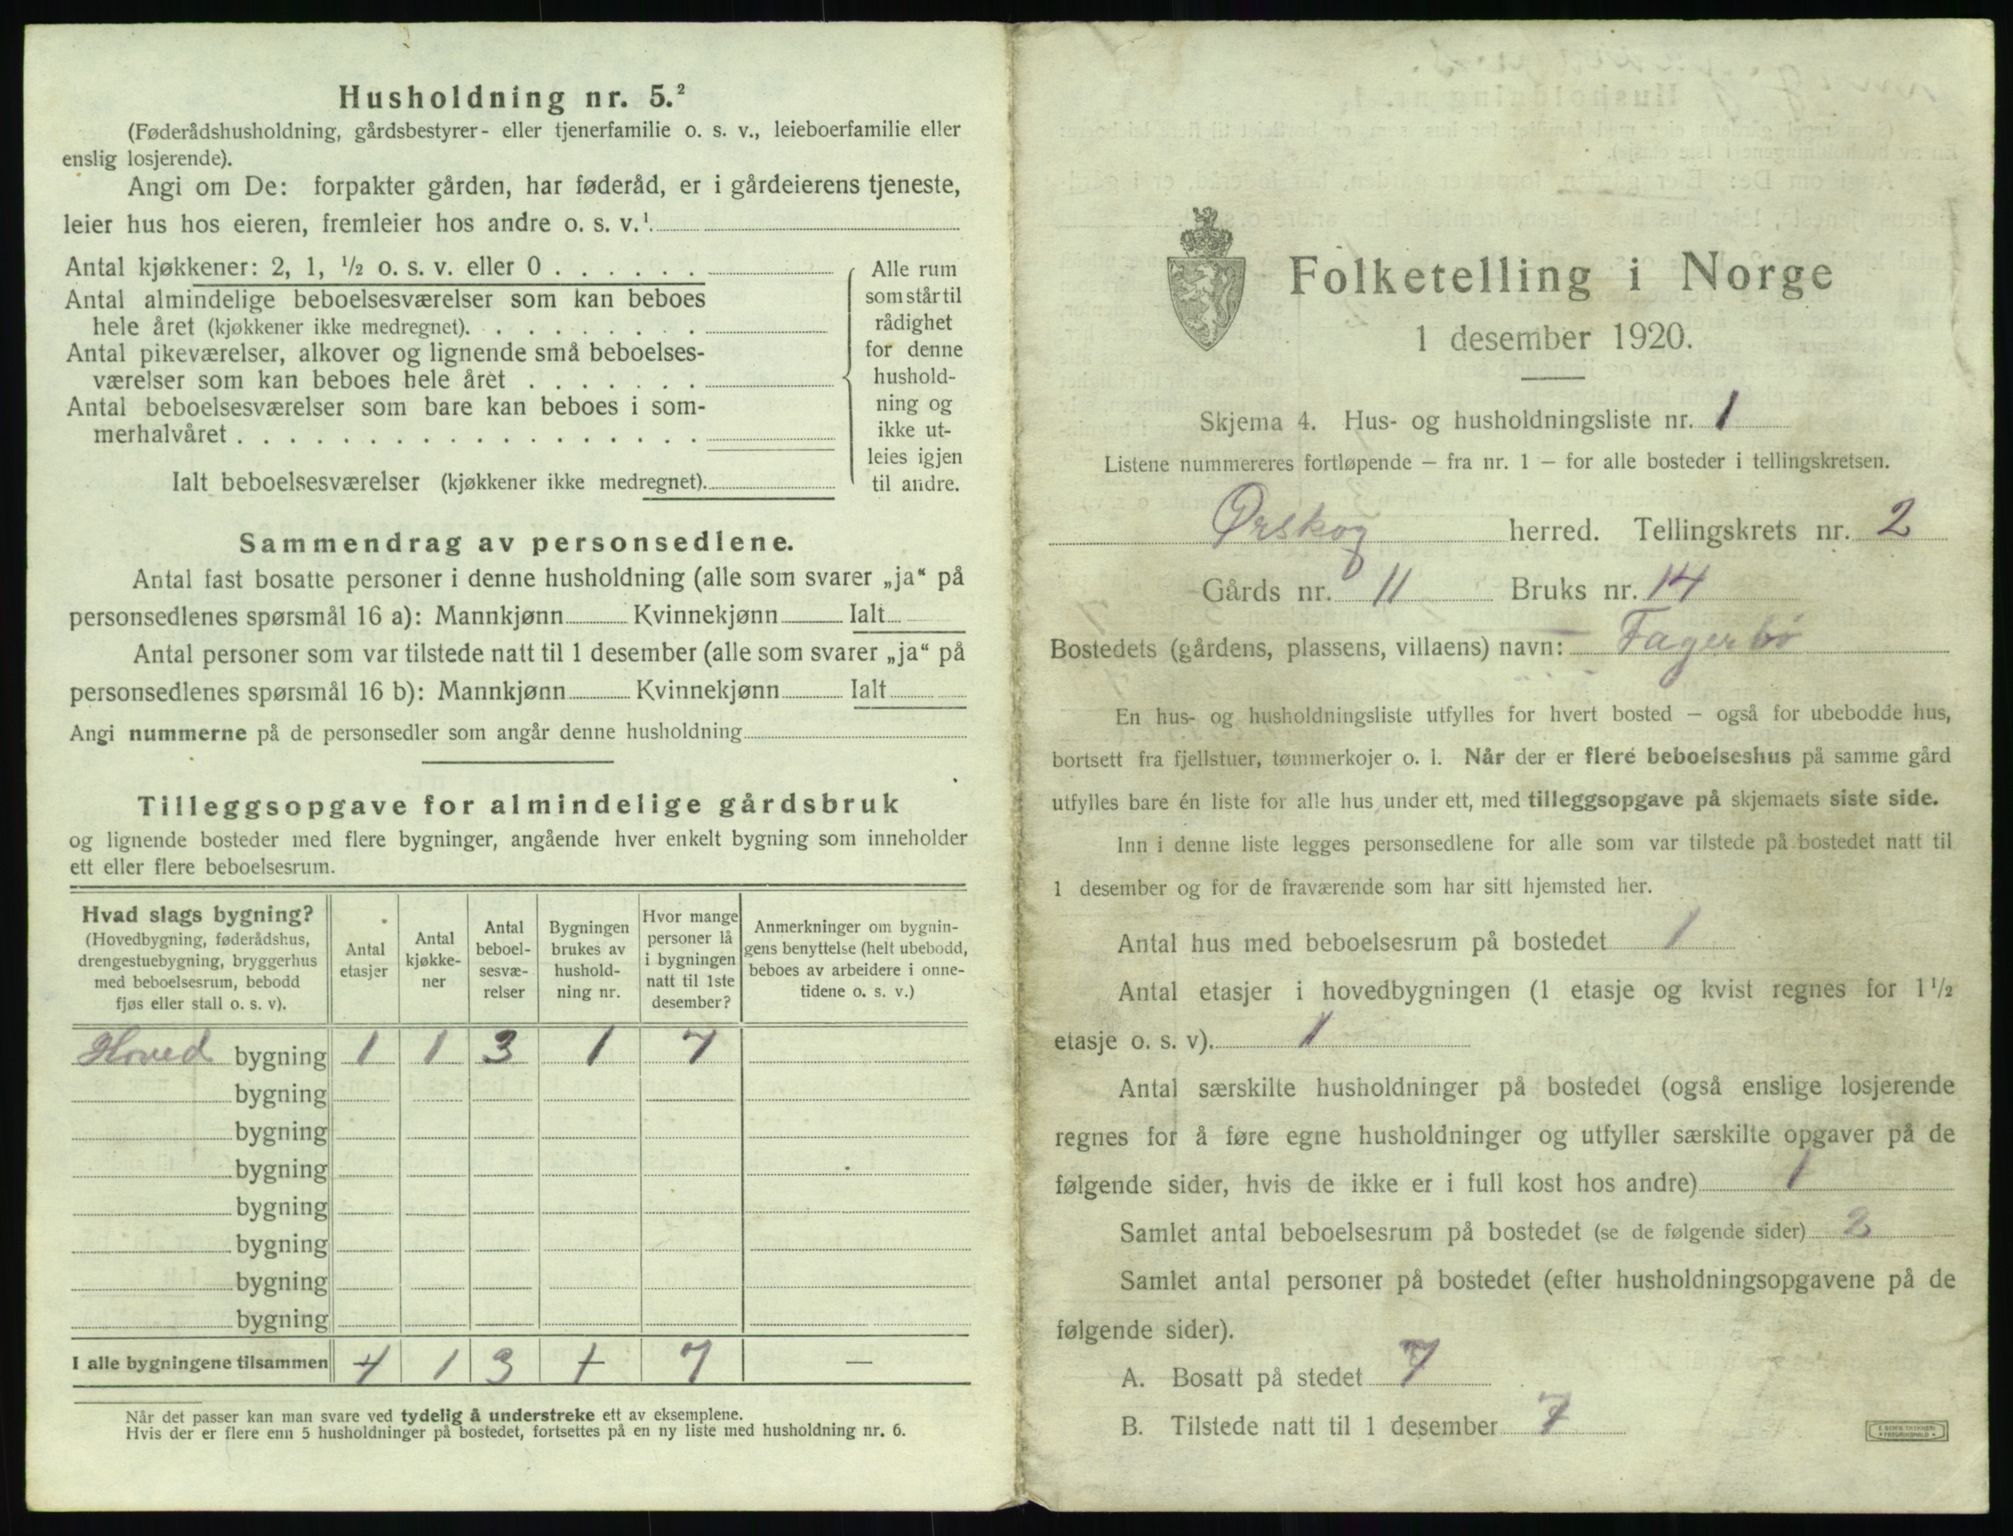 Husholdning nr. 5.²
(Føderådshusholdning, gårdsbestyrer- eller tjenerfamilie o. s. v., leieboerfamilie eller
enslig losjerende).
Angi om De: forpakter gården, har føderåd, er i gårdeierens tjeneste,
leier hus hos eieren, fremleier hos andre o. s. v.¹
Antal kjøkkener: 2, 1, ½ o. s. v. eller 0 . . . . . .
Antal almindelige beboelsesværelser som kan beboes
hele året (kjøkkener ikke medregnet). . . . . . . . .
Antal pikeværelser, alkover og lignende små beboelses-
værelser som kan beboes hele året . . . . . . .
Antal beboelsesværelser som bare kan beboes i som-
merhalvåret . . . . . . . . . . . . . . . . . .
Ialt beboelsesværelser (kjøkkener ikke medregnet).
Alle rum
som står til
rådighet
for denne
hushold-
ning og
ikke ut-
leies igjen
til andre.
Sammendrag av personsedlene.
Antal fast bosatte personer i denne husholdning (alle som svarer „ja“ på
personsedlenes spørsmål 16 a): Mannkjønn Kvinnekjønn Ialt
Antal personer som var tilstede natt til 1 desember (alle som svarer „ja“ på
personsedlenes spørsmål 16 b): Mannkjønn Kvinnekjønn Ialt
Angi nummerne på de personsedler som angår denne husholdning
Tilleggsopgave for almindelige gårdsbruk
og lignende bosteder med flere bygninger, angående hver enkelt bygning som inneholder
ett eller flere beboelsesrum.
Hvad slags bygning?
(Hovedbygning, føderådshus,
drengestuebygning, bryggerhus
med beboelsesrum, bebodd
fjøs eller stall o. s. v).
Antal
etasjer
Antal
kjøkke-
ner
Antal
beboel-
sesvæ-
relser
Bygningen
brukes av
hushold-
ning nr.
Hvor mange
personer lå
i bygningen
natt til 1ste
desember?
Anmerkninger om bygnin-
gens benyttelse (helt ubebodd,
beboes av arbeidere i onne-
tidene o. s. v.)
Hoved bygning 1 1 3 1 7
bygning
bygning
bygning
bygning
bygning
bygning
bygning
I alle bygningene tilsammen 1 3 + 7 —
Når det passer kan man svare ved tydelig å understreke ett av eksemplene.
Hvis der er flere enn 5 husholdninger på bostedet, fortsettes på en ny liste med husholdning nr. 6.
Folketelling i Norge
1 desember 1920.
Skjema 4. Hus- og husholdningsliste nr. 1
Listene nummereres fortløpende – fra nr. 1 – for alle bosteder i tellingskretsen.
Ørskog herred. Tellingskrets nr. 2
Gårds nr. 11 Bruks nr. 14
Bostedets (gårdens, plassens, villaens) navn: Fagerbø
En hus- og husholdningsliste utfylles for hvert bosted – også for ubebodde hus,
bortsett fra fjellstuer, tømmerkojer o. l. Når der er flere beboelseshus på samme gård
utfylles bare én liste for alle hus under ett, med tilleggsopgave på skjemaets siste side.
Inn i denne liste legges personsedlene for alle som var tilstede på bostedet natt til
1 desember og for de fraværende som har sitt hjemsted her.
Antal hus med beboelsesrum på bostedet 1
Antal etasjer i hovedbygningen (1 etasje og kvist regnes for 1½
etasje o. s. v). 1
Antal særskilte husholdninger på bostedet (også enslige losjerende
regnes for å føre egne husholdninger og utfyller særskilte opgaver på de
følgende sider, hvis de ikke er i full kost hos andre) 1
Samlet antal beboelsesrum på bostedet (se de følgende sider)
Samlet antal personer på bostedet (efter husholdningsopgavene på de
følgende sider).
A. Bosatt på stedet 7
B. Tilstede natt til 1 desember 7